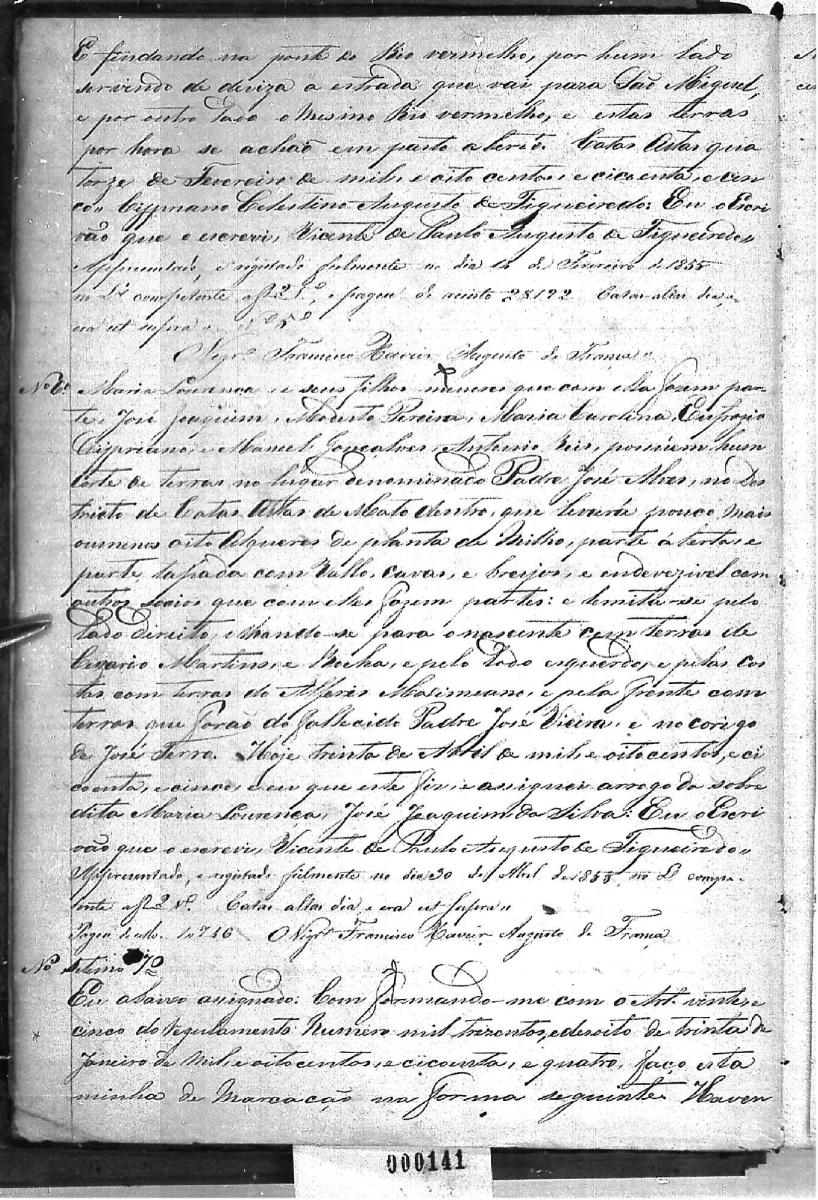 E findando na ponte do Rio vermelho, por hum lado
servindo de deviza a estrada que vai para São Miguel,
e por outro lado o mesmo Rio vermelho, e estas terras
por hora se achão em pasto aberto. Catas Altas qua
torze de Fevereiro de mil, e oito centos, e cicoenta, e cin
co, Cypriano Celestino Augusto de Figueiredo: Eu o Escri
vão que o escrevi, Vicente de Paulo Augusto de Figueiredo,,
Appresentado, e registado fielmente no dia 14 de Fevereiro de 1855
no Lº competente a fl 2 e pagou de 28192 Catas altas dia, e
era ut supra
O Vigrº Francisco Xavier Augusto de França,,
Nº 6º Maria Lourença, e seus filhos menores que com ella fazem par
te, José Joaquim, Modesto Pereira, Maria Carolina, Eufrozio
Cipriano, e Manoel Gonçalves, Antonio Reis, possúem hum
corte de terras no lugar denominado Padre José Alves, no Des
tricto de Catas Altas de Mato dentro, que levará pouco mais
oumenos oito Alqueres de planta de Milho, parte á berta, e
parte tapada com Vallo, cavas, e breijos, e endevezivel com
outros socios que com elles fazem partes: e lemita-se pelo
Lado direito, olhando-se para o nascente com terras de
Cezario Martins, e Rocha, e pelo Lado esquerdo, e pelas cos
tas com terras do Alferes Masimeano, e pela frente com
terras que forão do fallecido Padre José Vieira, e no corigo
de José Ferro. Hoje trinta de Abril de mil, e oitocentos, e ci
coenta, e cinco, e em que este fiz, e assignei arrogo da sobre
dita Maria Lourença, José Joaquim da Silva: Eu o Escri
vão que o escrevi, Vicente de Paulo Augusto de Figueiredo,,
Appresentado, e registado fielmente no dia 30 de Abril de 1855, no Lº compe
tente a fl 2 vº. Catas altas dia e era ut supra,,
Pagou de 1$746 O Vigrº Francisco Xavier Augusto de França
Nº setimo 7º
Eu abaixo assignado: Com formando-me com o Artº vinte, e
cinco do regulamento Numero mil trezentos, e desoito de trinta de
Janeiro de Mil, e oitocentos, e cicoenta, e quatro, faço esta
minha de Marcação na forma seguinte. Haven
000141